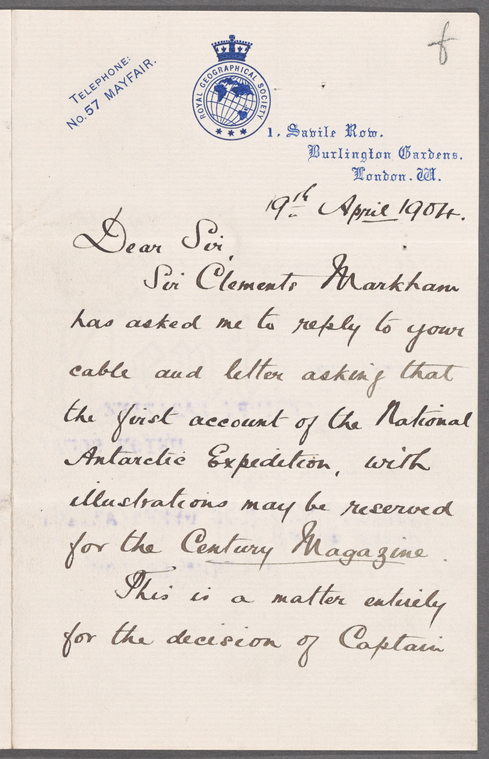 f
TELEPHONE:
No. 57 MAYFAIR.
ROYAL GEOGRAPHICAL SOCIETY
1, Savile Row.
Burlington Gardens.
London. W.
19th April 1904.
Dear Sir,
Sir Clements Markham
has asked me to reply to your
cable and letter asking that
the first account of the National
Antarctic Expedition, with
illustrations may be reserved
for the Century Magazine.
This is a matter entirely
for the decision of Captain